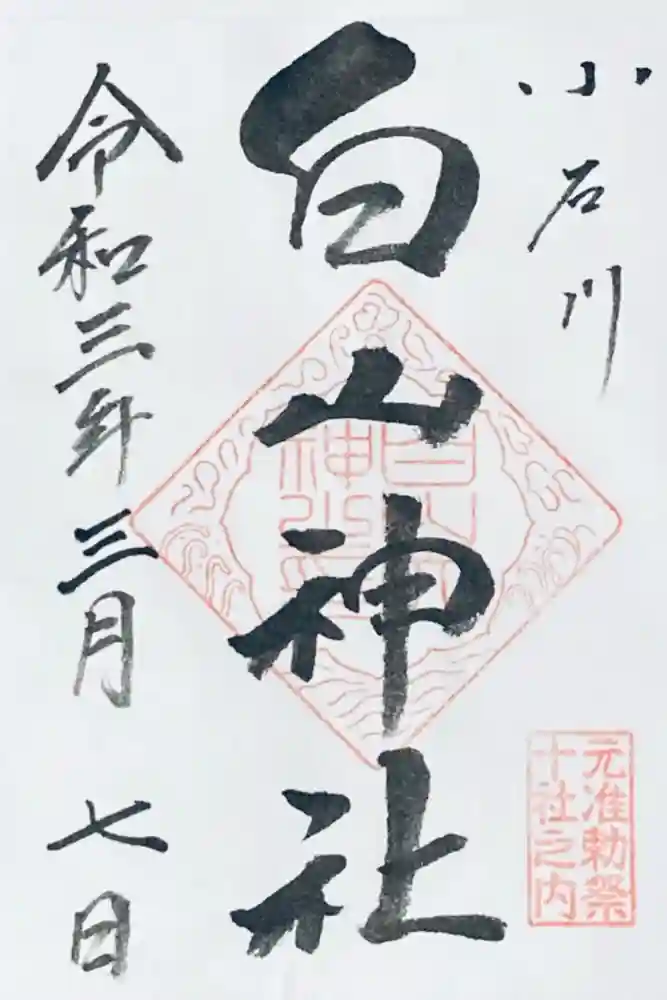 小石川
白山神社
令和三年三月七日
元准勅祭
十社之内